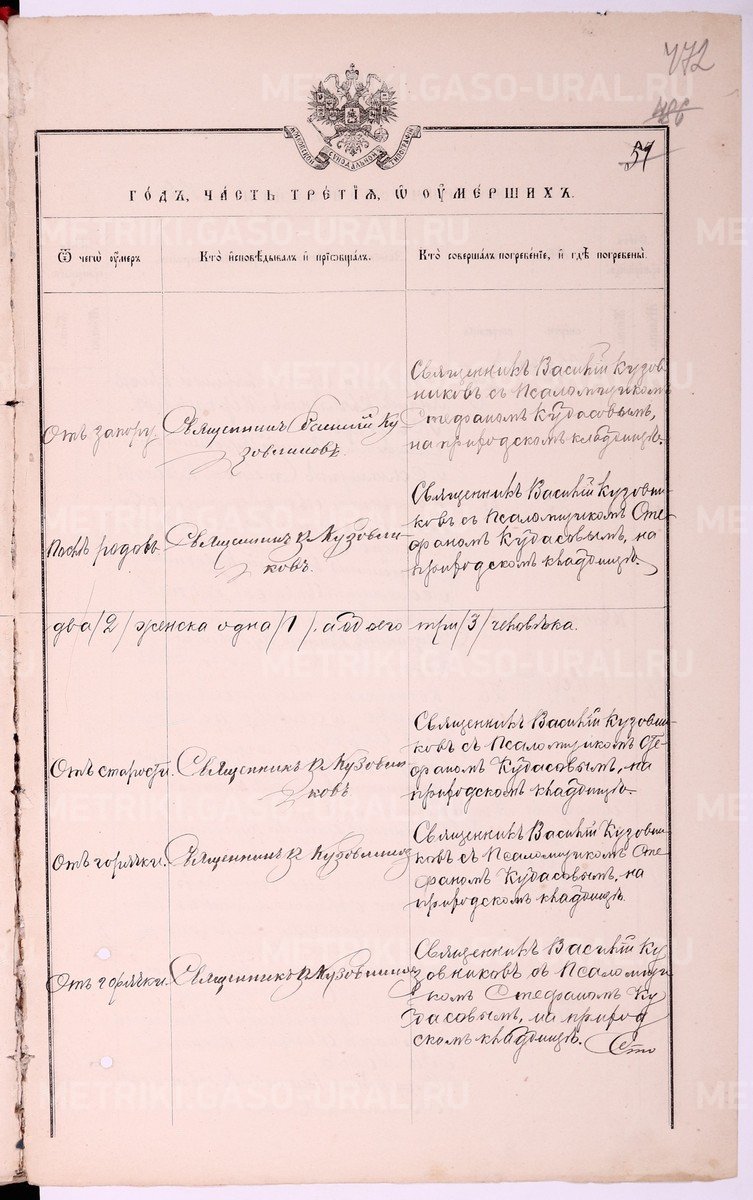 472
486
59
МОСКОВСКОЙ СѴНОДАЛЬНОЙ ТИПОГРАФІИ
ГОДЪ, ЧАСТЬ ТРЕТІЯ, Ѿ ОУМЕРШИХЪ.
Ѿ чегѡ оумеръ
Кто исповѣдывалъ и пріобщалъ.
Кто совершалъ погребеніе, и гдѣ погребены.
Отъ запору.
Священникъ Василій Ку
зовниковъ.
Священникъ Василій Кузов-
никовъ съ Псаломщикомъ
Стефаномъ Кудасовымъ,
на приходскомъ кладбищѣ.
Послѣ родовъ
Священникъ В. Кузовни-
ковъ.
Священникъ Василій Кузовни-
ковъ съ Псаломщикомъ Сте-
фаномъ Кудасовымъ, на
приходскомъ кладбищѣ.
два /2/ женска одна /1/, а обоего три /3/ человѣка.
Отъ старости.
Священникъ В. Кузовни
ковъ
Священникъ Василій Кузовни-
ковъ съ Псаломщикомъ Сте-
фаномъ Кудасовымъ, на
приходскомъ кладбищѣ.
Отъ горячки.
Священникъ В. Кузовников
Священникъ Василій Кузовни-
ковъ съ Псаломщикомъ Сте-
фаномъ Кудасовымъ, на
приходскомъ кладбищѣ.
Отъ горячки.
Священникъ В. Кузовников
Священникъ Василій Ку
зовниковъ съ Псаломщи
комъ Стефаномъ Ку
дасовымъ, на приход
скомъ кладбищѣ.
Сто
METRIKI.GASO-URAL.RU